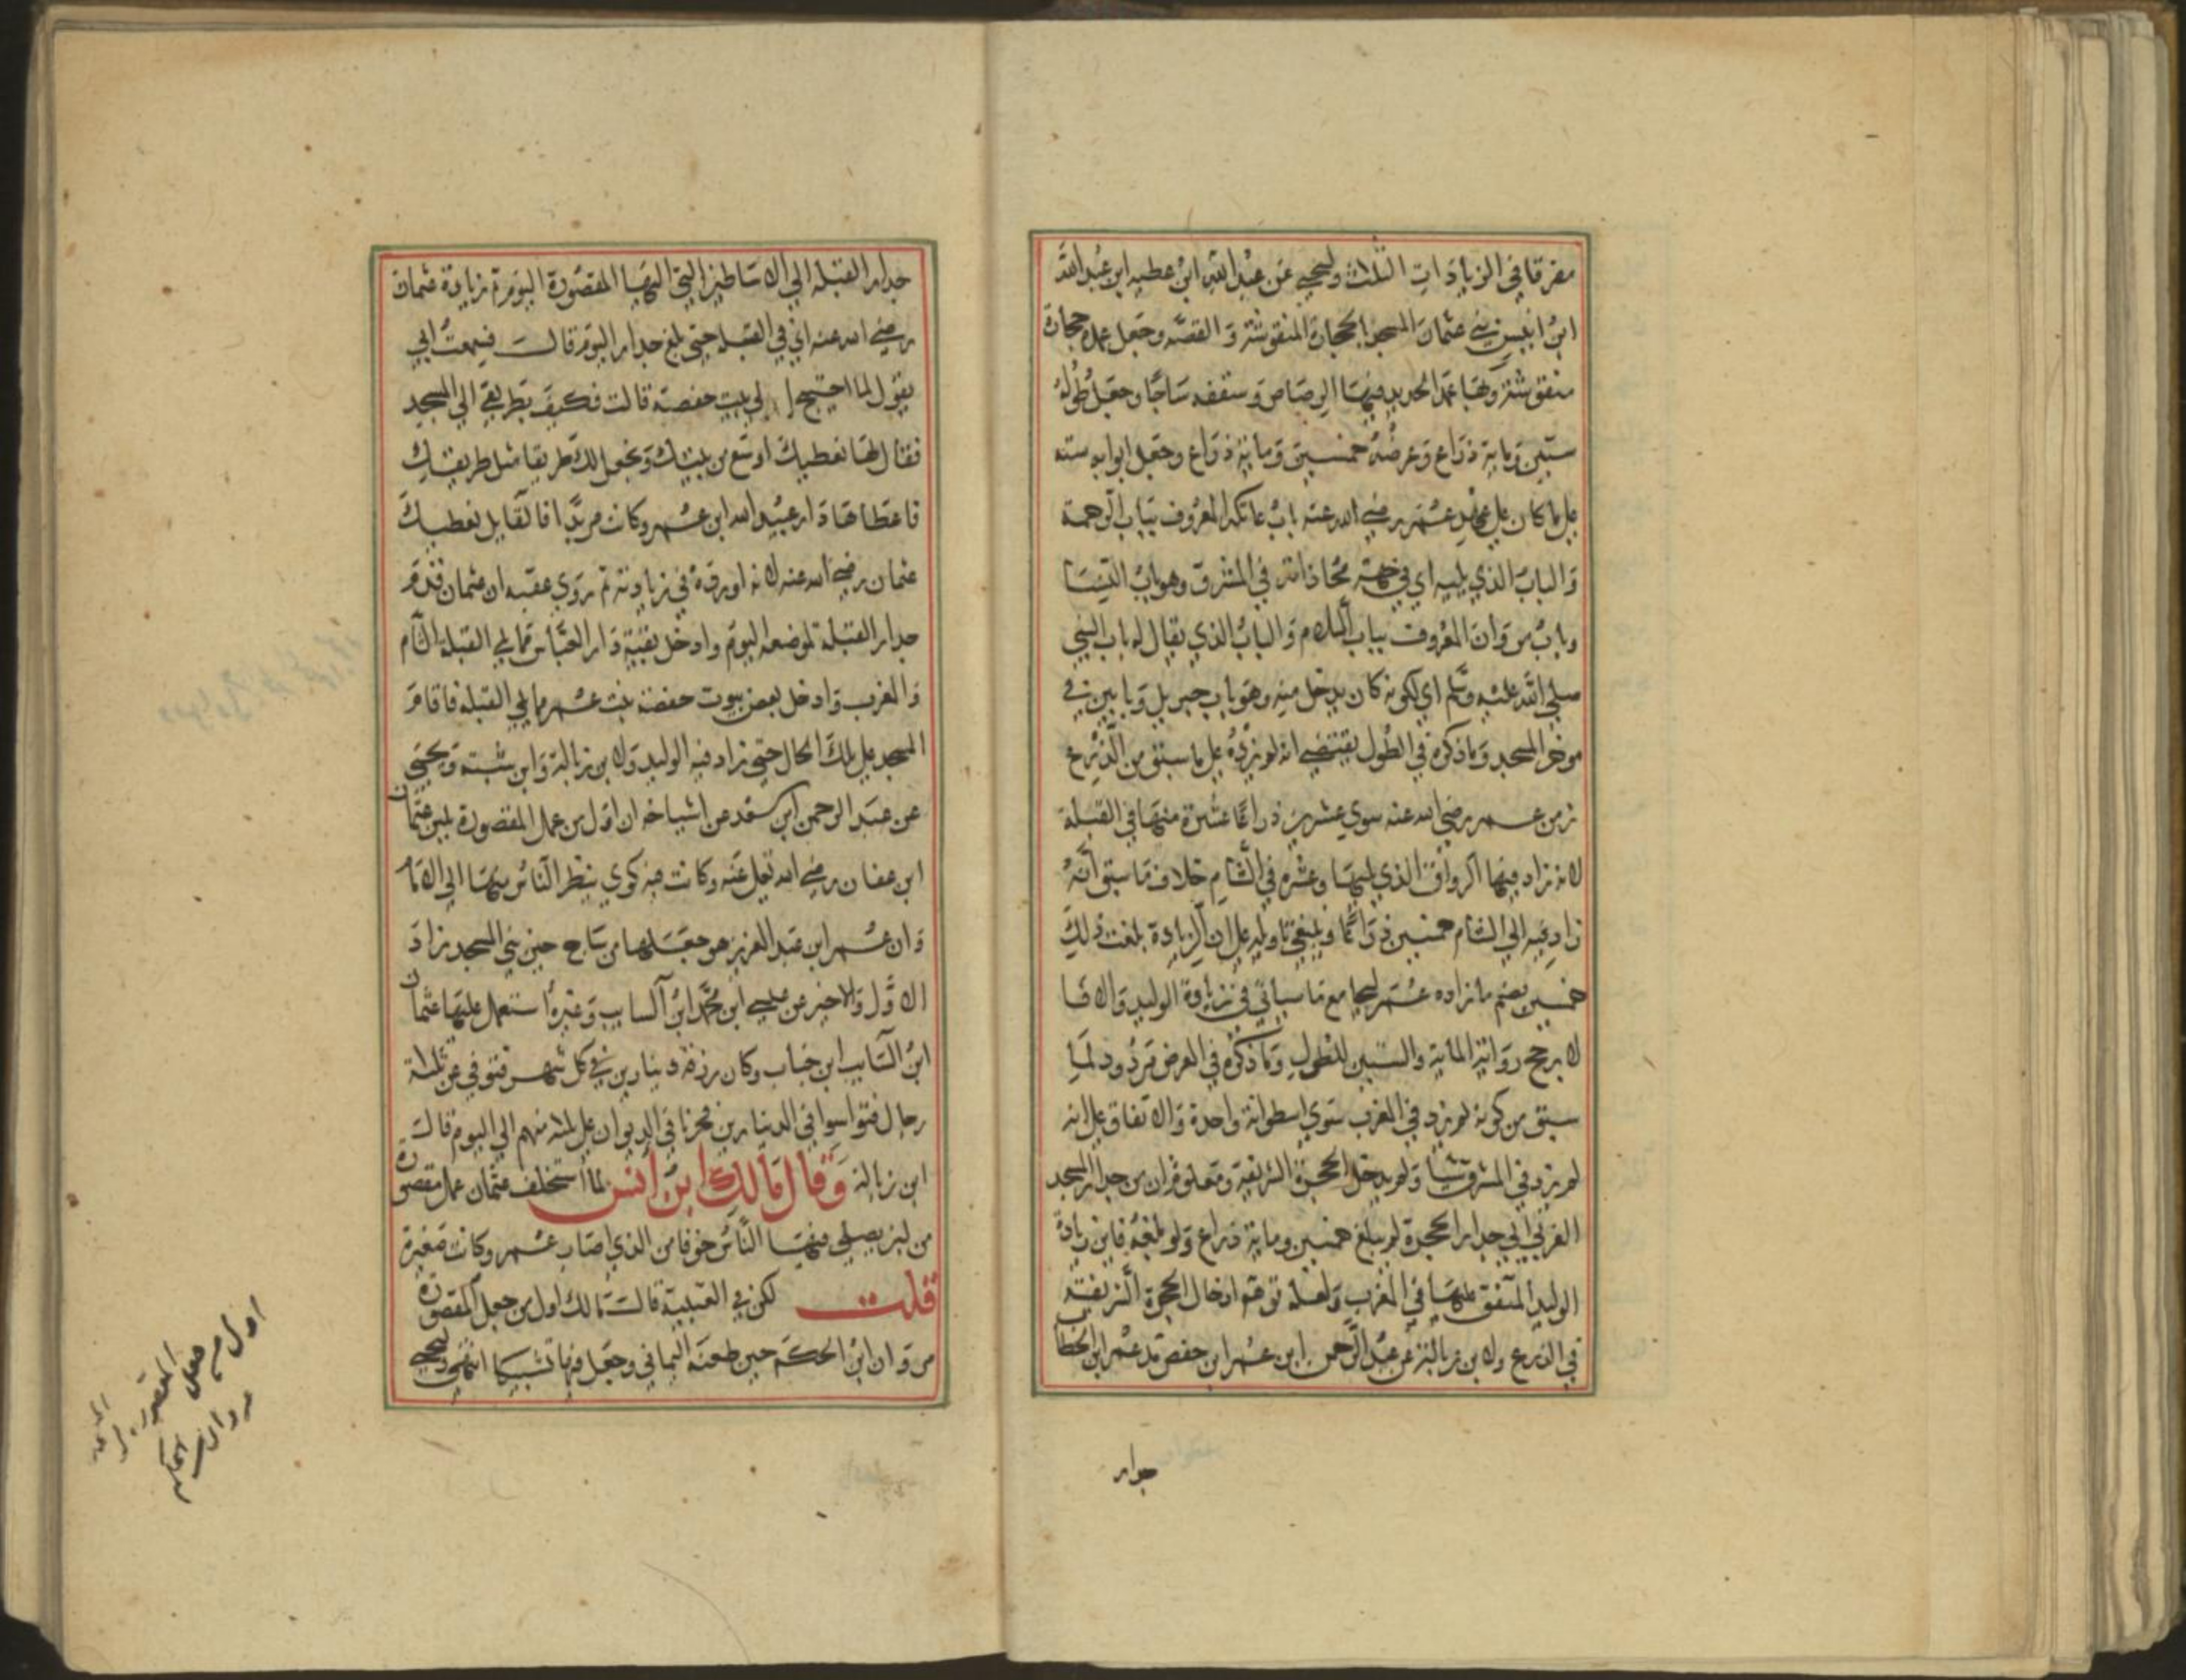 مفرقا في الزيادات الثلاث وليحيى عن عبد الله ابن عطيه ابن عبد الله
ابن انيس بني عثمان المسجد بالحجارة المنقوشة و القصه وجعل عمده حجارة
منقوشة وبها عمد الحديد فيها الرصاص وسقفه ساجا وجعل طوله
ستين وماية ذراع وعرضه خمسين وماية ذراع وجعل ابوابه سته
على ما كان على عهد عمر رضي الله عنه باب عاتكه المعروف بباب الرحمة
والباب الذي يليه اي في جهة محاذاته في المشرق وهو باب النسا
وباب مروان المعروف بباب السلام والباب الذي يقال له باب النبي
صلى الله عليه وسلم اي لكونه كان يدخل منه وهو باب جبريل وبابين في
موخر المسجد وما ذكره في الطول يقتضي انه لم يزده على ما سبق من الذرع
زمن عمر رضي الله عنه سوي عشرين ذراعا عشرة منها في القبلة
لانه زاد فيها الرواق الذي يليها وعشره في الشام خلاف ما سبق انه
زاد فيه الي الشام خمسين ذراعا وينبغي تاويله على ان الزيادة بلغت ذلك
خمسين بضم ما زاده عمر ليجامع ما سياتي في زيادة الوليد والا فا
لا يرجح رواية الماية والستين للطول وما ذكره في العرض مردود لما
سبق من كونه لم يزد في المغرب سوي اسطوانة واحدة والاتفاق على انه
لم يزد في المشرق شيأ ولم يدخل الحجرة الشريفة ومعلوم ان من جدار المسجد
الغربي الي جدار الحجرة لم يبلغ خمسين وماية ذراع ولو بلغه فاين زيادة
الوليد المتفق عليها في المغرب ولعله توهم ادخال الحجرة الشريفة
في الذرع ولابن زبالة عن عبد الرحمن ابن عمر ابن حفص مد عمر ابن الخطاب
جدار
جدار القبلة الي الاساطين التي اليها المقصورة اليوم ثم زيادة عثمان
رضي الله عنه اي في القبله حتي بلغ جداره اليوم قالت فسمعت ابي
يقول لما احتيج الي بيت حفصة قالت فكيف بطريقي الي المسجد
فقال لها نعطيك اوسع من بيتك ونجعل لك طريقا مثل طريقك
فاعطاها دار عبيد الله ابن عمر وكانت مربدا فالقايل نعطيك
عثمان رضي الله عنه لانه اورده في زيادته ثم روي عقبه ان عثمان قدم
جدار القبلة لموضعه اليوم وادخل بقية دار العباس مما يلي القبلة الشام
والمغرب وادخل بعض بيوت حفصة بنت عمر مما يلي القبلة فاقام
المسجد على تلك الحال حتي زاد فيه الوليد ولابن زبالة وابن شبة ويحيى
عن عبد الرحمن ابن سعد عن اشياخه ان اول من عمل المقصورة بلبن عثمان
ابن عفان رضي الله تعالى عنه وكانت فيه كوي ينظر الناس منها الي الامام
وان عمر ابن عبد العزيز هو جعلها من ساج حين بني المسجد زاد
الاول والاخير عن عيسى ابن محمد ابن السايب وغيره استعمل عليها عثمان
ابن السايب ابن خباب وكان رزقه دينارين في كل شهر فتوفي عن ثلاثة
رجال فتواسوا في الدينارين فجريا في الديوان على ثلاثة منهم الي اليوم قالت
ابن زبالة وقال مالك ابن انس لما استخلف عثمان عمل مقصورة
من لبن يصلي فيها الناس خوفا من الذي اصاب عمر وكانت صغيرة
قلت لكن في العتبية قالت مالك اول من جعل المقصورة
مروان ابن الحكم حين طعنه اليماني وجعل فيها تشبيكا انتهى وليحيى
اول من
جعل
المقصورة
مروان
ابن الحكم